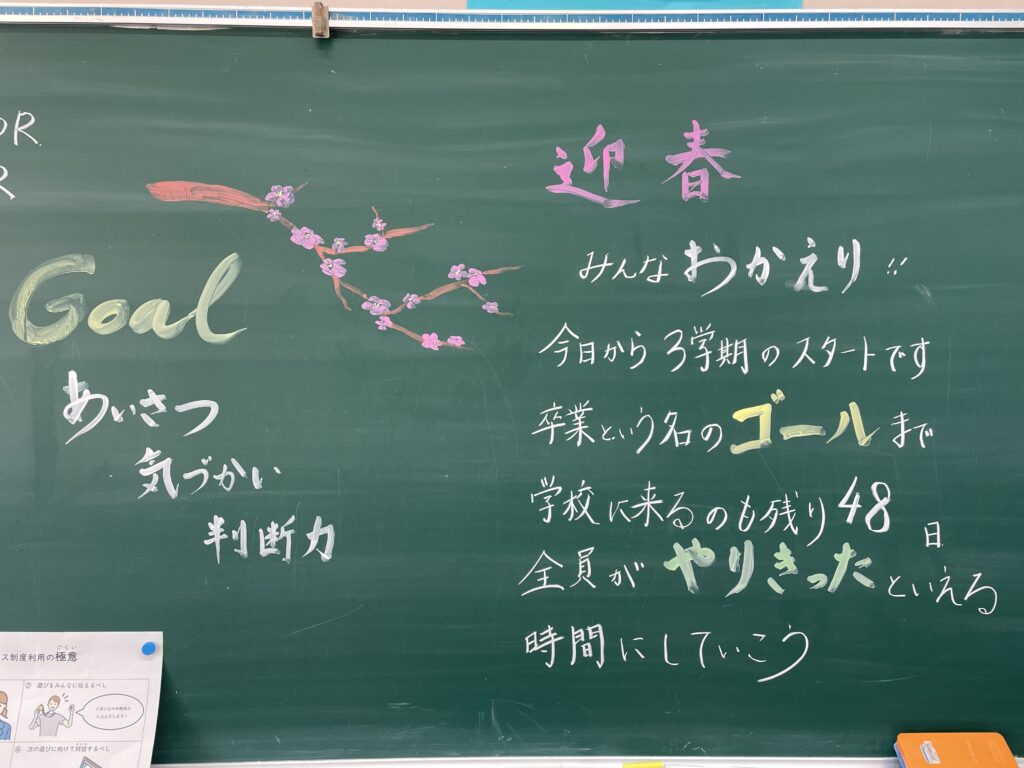 OR
R
Goal
あいさつ
気づかい
判断力
迎春
みんなおかえり!!
今日から3学期のスタートです
卒業という名のゴールまで
学校に来るのも残り48日
全員がやりきったといえる
時間にしていこう
ス制度利用の極意
ごくい
② 遊びをみんなに伝えるべし
④ 次の遊びに向けて対話するべし